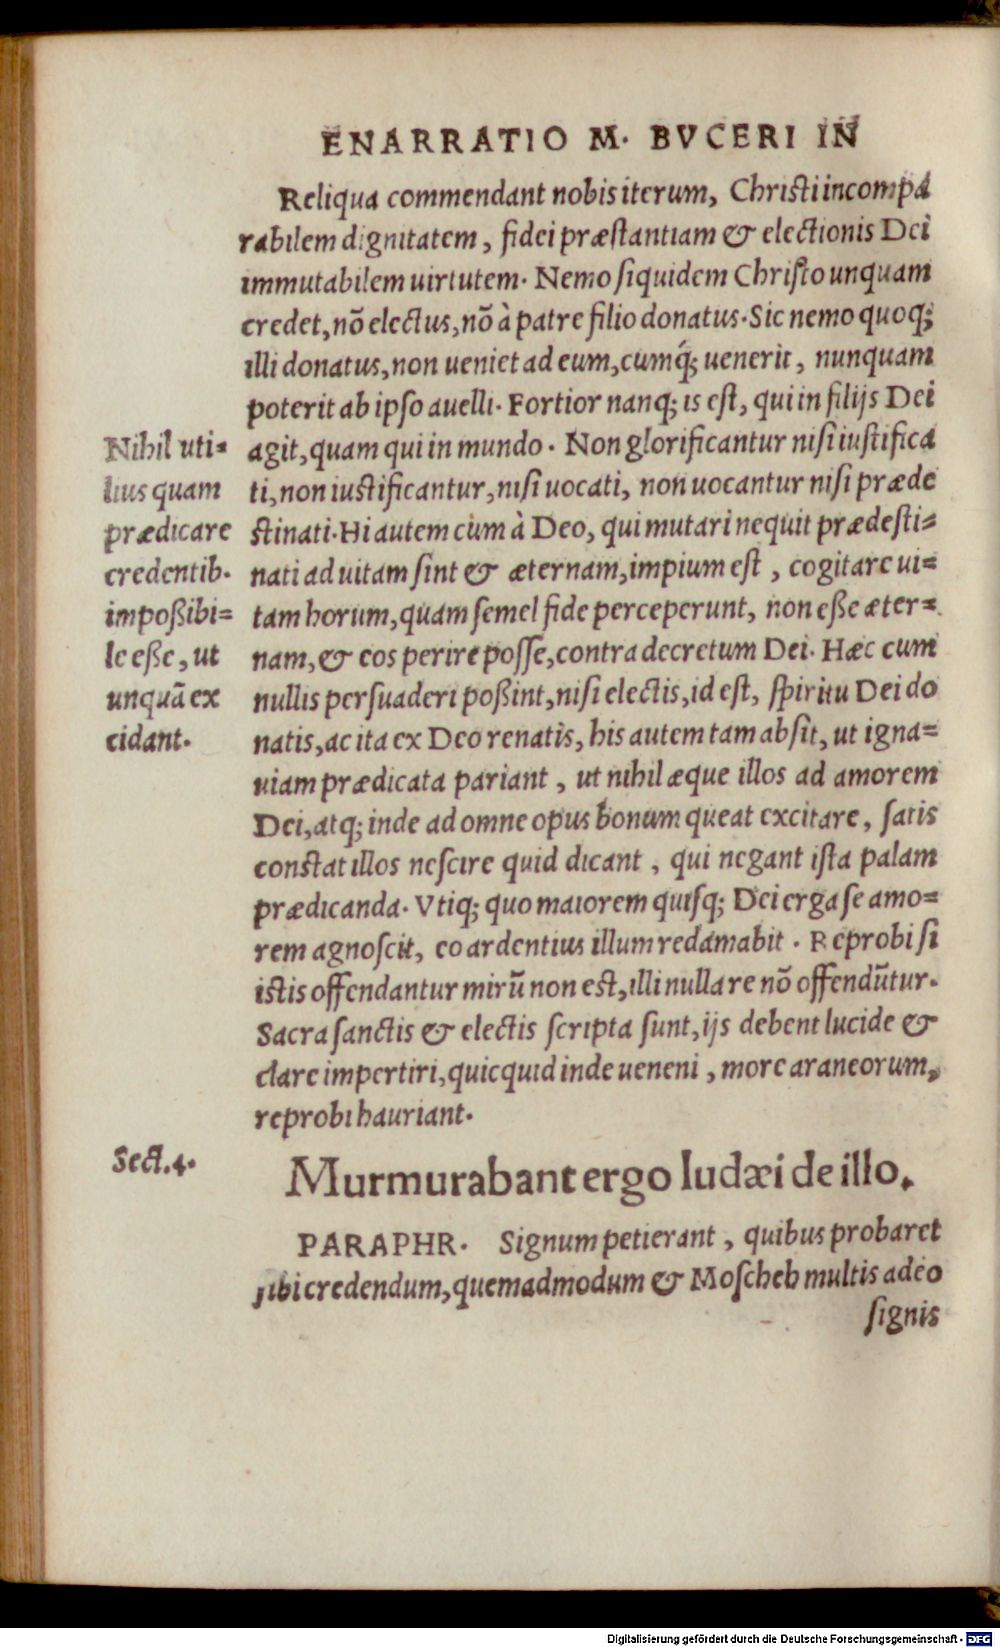 ENARRATIO M. BVCERI IN
Reliqua commendant nobis iterum, Christi incompa
rabilem dignitatem, fidei præstantiam & electionis Dei
immutabilem uirtutem. Nemo siquidem Christo unquam
credet, nō electus, nō à patre filio donatus. Sic nemo quoq;
illi donatus, non ueniet ad eum, cumq́; uenerit, nunquam
poterit ab ipso auelli. Fortior nanq; is est, qui in filijs Dei
agit, quam qui in mundo. Non glorificantur nisi iustifica
ti, non iustificantur, nisi uocati, non uocantur nisi præde
stinati. Hi autem cùm à Deo, qui mutari nequit prædesti=
nati ad uitam sint & æternam, impium est, cogitare ui=
tam horum, quam semel fide perceperunt, non eße æter=
nam, & eos perire posse, contra decretum Dei. Hæc cum
nullis persuaderi poßint, nisi electis, id est, spiritu Dei do
natis, ac ita ex Deo renatis, his autem tam absit, ut igna=
uiam prædicata pariant, ut nihil æque illos ad amorem
Dei, atq; inde ad omne opus bonum queat excitare, satis
constat illos nescire quid dicant, qui negant ista palam
prædicanda. Vtiq; quo maiorem quisq; Dei erga se amo=
rem agnoscit, eo ardentius illum redamabit. Reprobi si
istis offendantur mirū non est, illi nulla re nō offendūtur.
Sacra sanctis & electis scripta sunt, ijs debent lucide &
clare impertiri, quicquid inde ueneni, more araneorum,
reprobi hauriant.
Nihil uti=
lius quam
prædicare
credentib.
impoßibi=
le eße, ut
unquā ex
cidant.
Sect. 4.
Murmurabant ergo Iudæi de illo.
PARAPHR. Signum petierant, quibus probaret
sibi credendum, quemadmodum & Moscheh multis adeo
signis
Digitalisierung gefördert durch die Deutsche Forschungsgemeinschaft - DFG